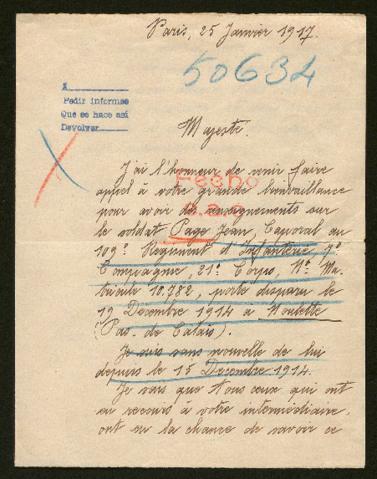 Paris, 25 Janvier 1917.
50634
A
Pedir informes
Que se hace así
Devolver
Majesté.
J'ai l'honneur de venir faire
appel à votre grande bienveillance
pour avoir des renseignements sur
le soldat Page Jean, Caporal au
109e Régiment d'Infanterie, 7e
Compagnie, 21e Corps, No Ma-
tricule 10.782, porté disparu le
17 Décembre 1914 à Noulette
(Pas. de Calais).
Je suis sans nouvelle de lui
depuis le 15 Décembre 1914.
Je sais que tous ceux qui ont
eu recours à votre intermédiaire,
ont eu la chance de savoir ce
Fecho